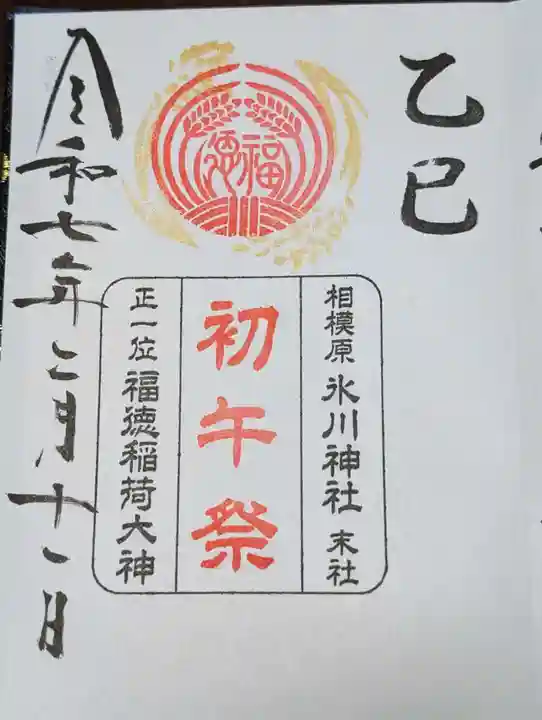 乙巳
福徳
相模原 氷川神社 末社
初午祭
正一位 福徳稲荷大神
令和七年二月十一日